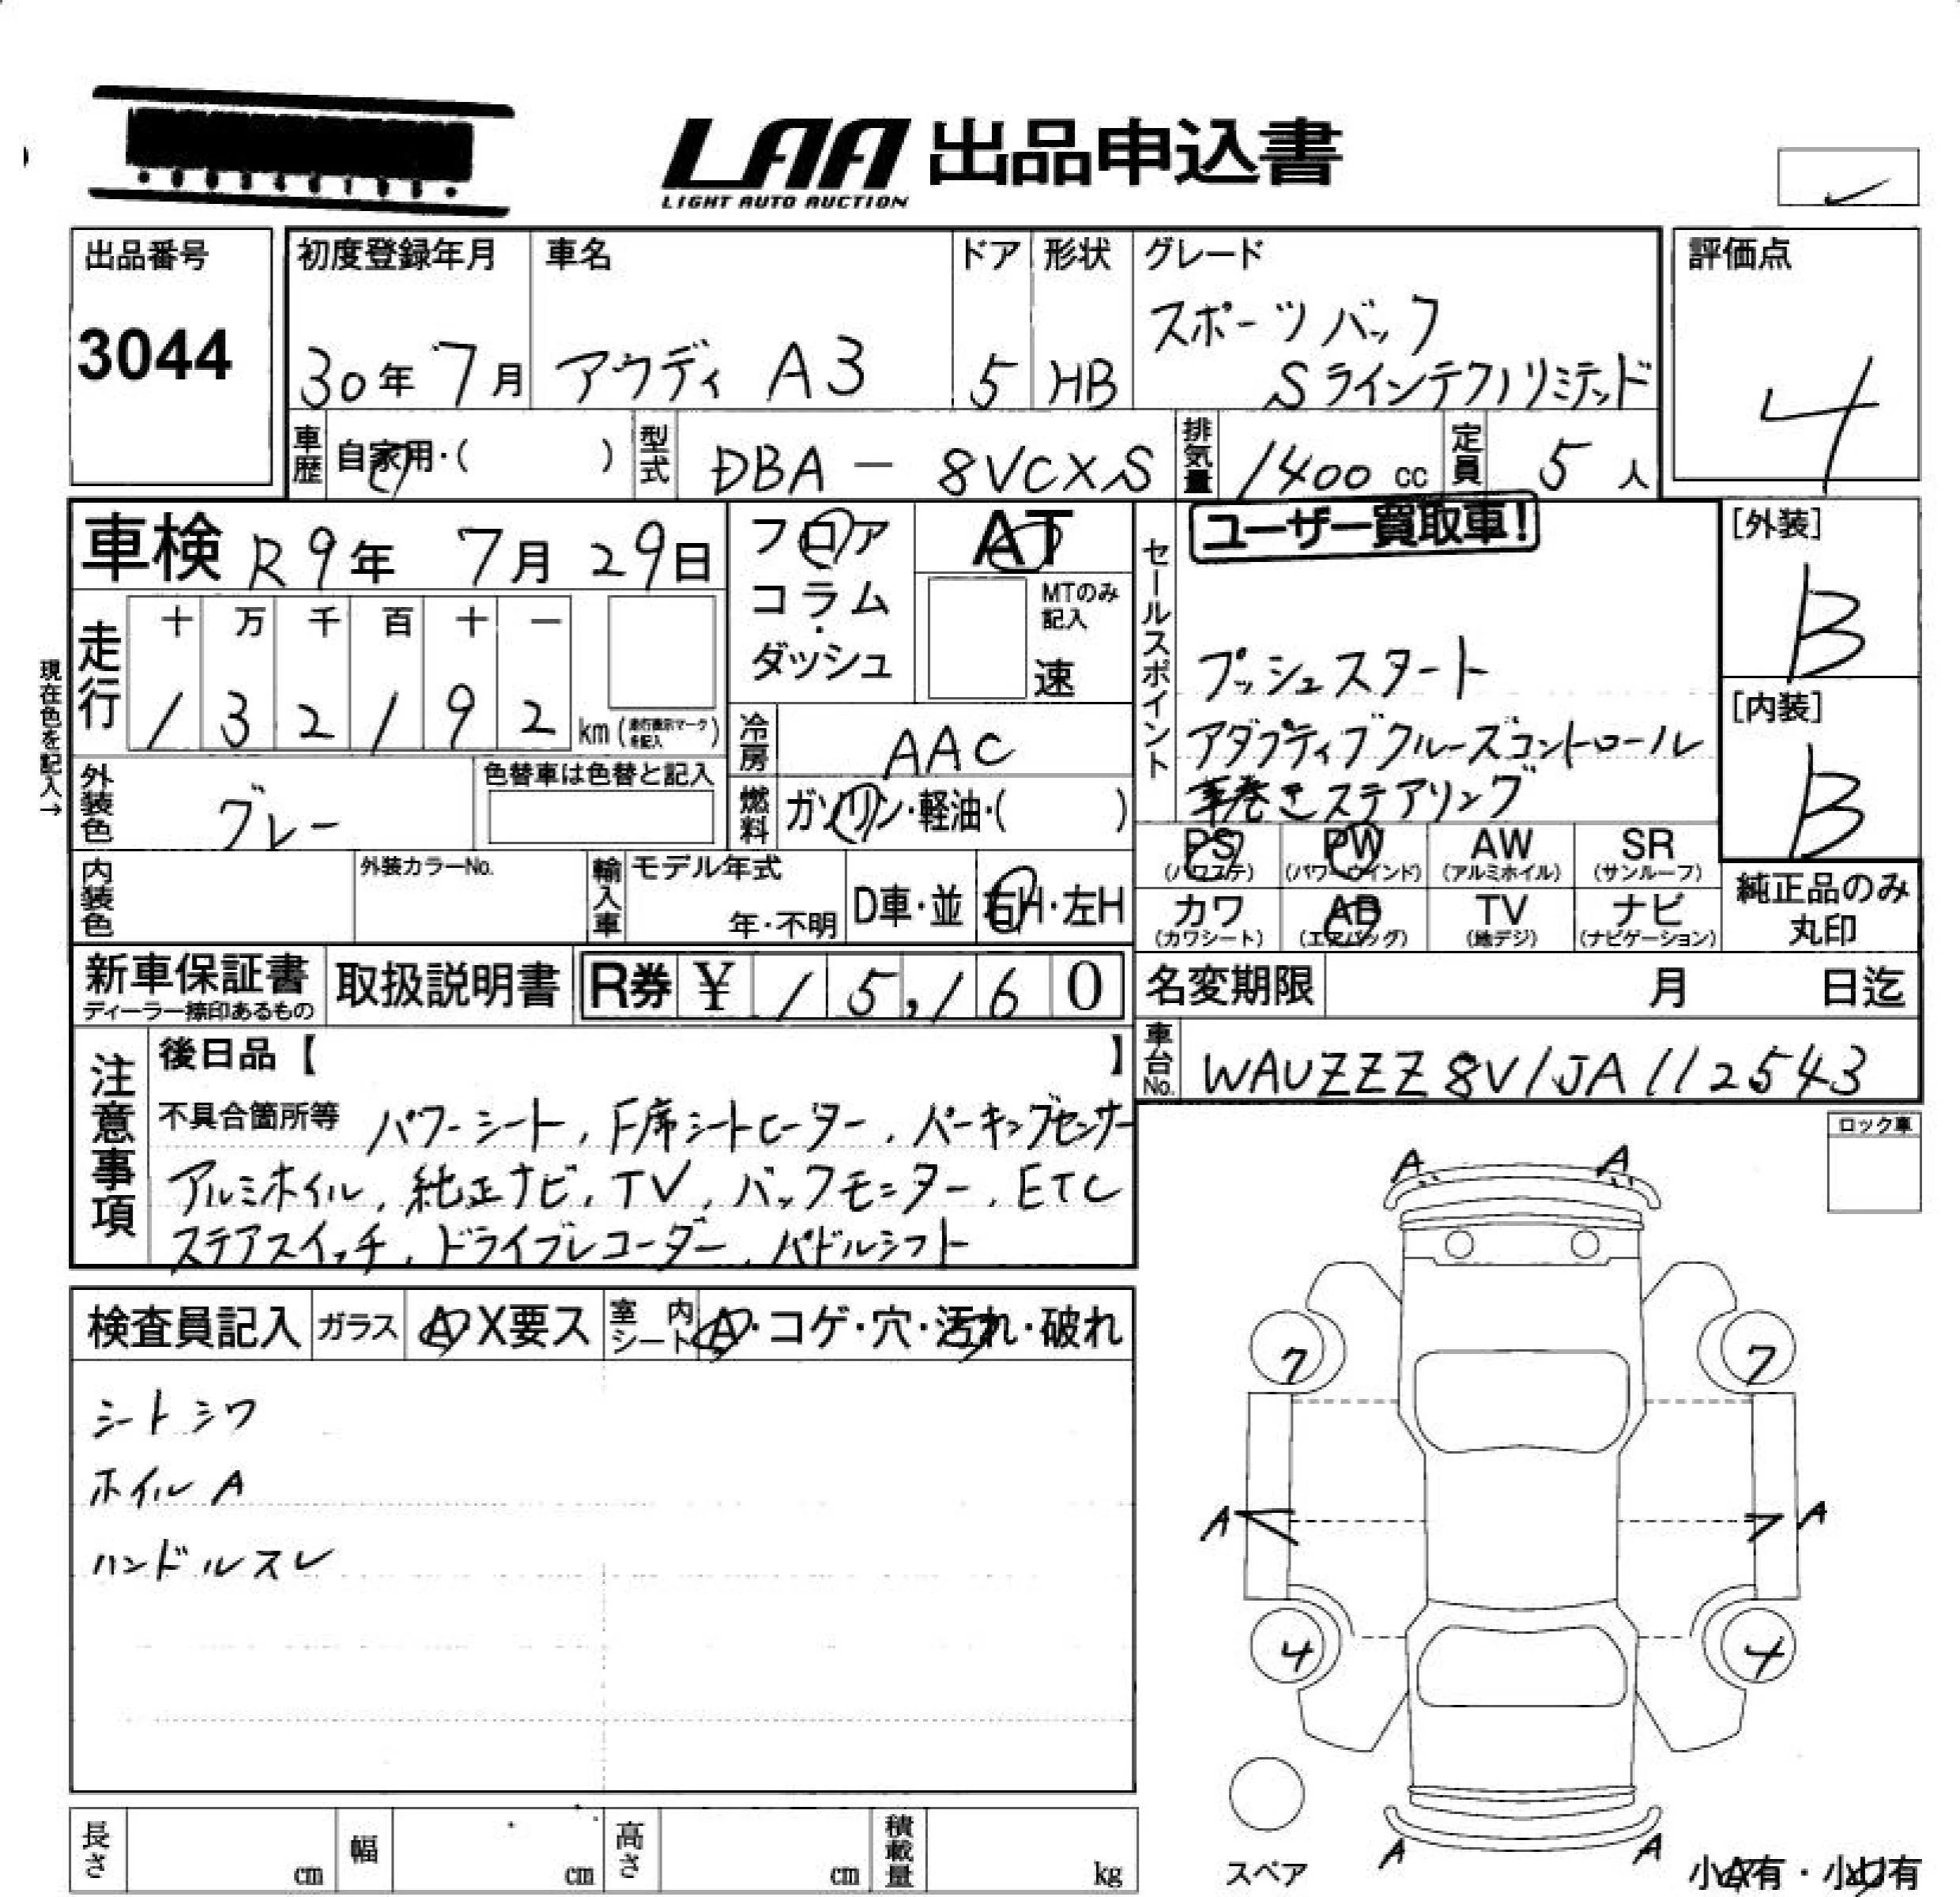 LAA 出品申込書
LIGHT AUTO AUCTION
出品番号
3044
初度登録年月
30年 7月
車名
アウディ A3
ドア
5
形状
HB
グレード
スポーツバック
Sラインテクノリミテッド
評価点
4
車歴
自家用・( )
型式
DBA - 8VCXS
排気量
1400 cc
定員
5 人
車検 R9年 7月 29日
フロア
コラム
・
ダッシュ
AT
MTのみ
記入
速
セールスポイント
ユーザー買取車!
プッシュスタート
アダプティブクルーズコントロール
革巻きステアリング
[外装]
B
[内装]
B
現在色を記入→
走行
十 万 千 百 十 一
1 3 2 1 9 2 km
冷房
AAC
外装色
グレー
色替車は色替と記入
燃料
ガソリン・軽油・( )
PS
(パワステ)
PW
(パワーウインド)
AW
(アルミホイル)
SR
(サンルーフ)
内装色
外装カラーNo.
輸入車
モデル年式
年・不明
D車・並
右H・左H
カワ
(カワシート)
AB
(エアバッグ)
TV
(地デジ)
ナビ
(ナビゲーション)
純正品のみ
丸印
新車保証書
ディーラー捺印あるもの
取扱説明書
R券 ¥ 15,160
名変期限 月 日迄
注意事項
後日品【 】
車台No.
WAUZZZ8V1JA112543
不具合箇所等 パワーシート, F席シートヒーター, パーキングセンサー
アルミホイル, 純正ナビ, TV, バックモニター, ETC
ステアスイッチ, ドライブレコーダー, パドルシフト
ロック車
検査員記入
ガラス
A・X要ス
室内
シート
A・コゲ・穴・汚れ・破れ
シートシワ
ホイルA
ハンドルスレ
A A
7 7
A A
4 4
スペア
A A
小A有・小U有
長さ cm
幅 cm
高さ cm
積載量 kg